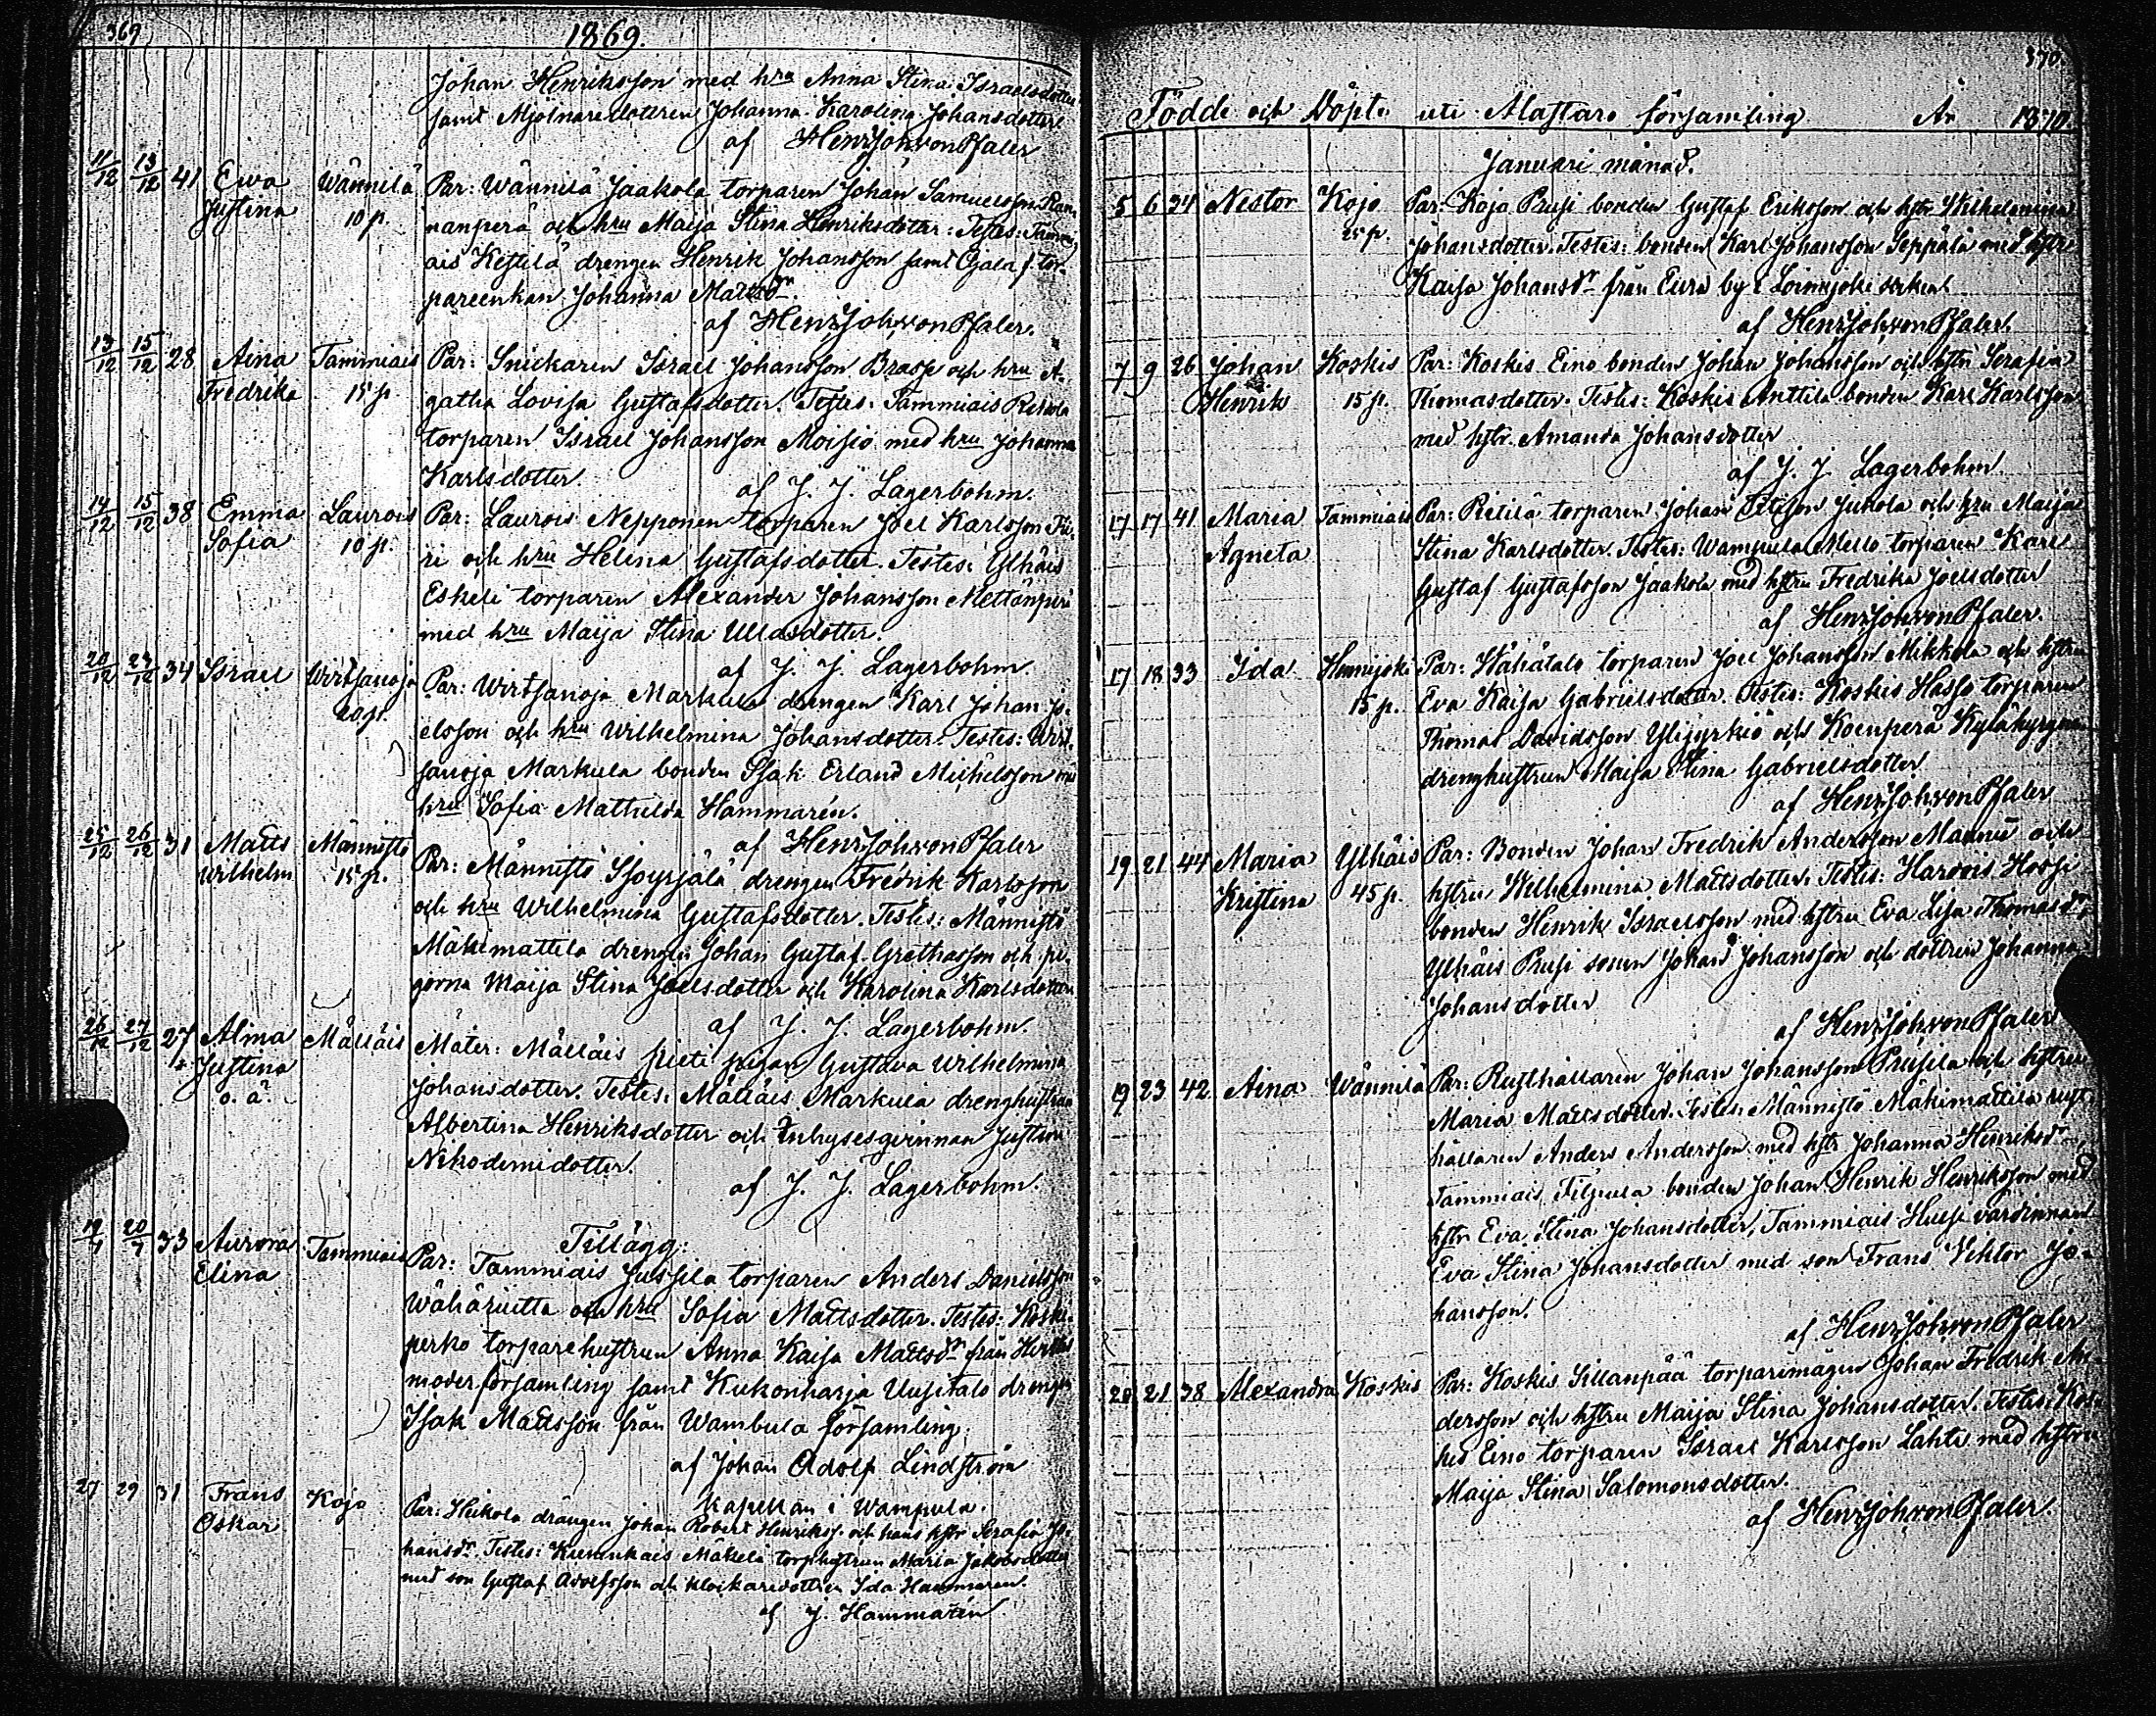 369
1869.
Johan Henriksson med hru Anna Stina Israelsdotter
samt Mjölnaredotteren Johanna Karolina Johansdotter
af HenrJohvonPfaler
11/12 13/12 41 Ewa Wännilä Par: Wännilä Jaakola torparen Johan Samuelsson Ran-
Justina 10 p. nanperä och hru Maija Stina Henriksdotter: Testes: Tammi-
ais Kestilä drengen Henrik Johansson samt Ojala f. tor-
pareenkan Johanna Mattsdr.
af HenrJohvonPfaler.
13/12 15/12 28 Aina Tammiais Par: Snickaren Israel Johansson Brasse och hru A-
Fredrika 15 p. gatha Lovisa Gustafsdotter. Testes: Tammiais
torparen Israel Johansson Moisio med hru Johanna
Karlsdotter
af J. J. Lagerbohm.
14/12 15/12 38 Emma Laurois Par: Laurois Nepponen torparen Joel Karlsson
Sofia 10 p. ri och hru Helena Gustafsdotter. Testes: Ylhäis
Eskeli torparen Alexander Johansson Mettänperä
med hru Maija Stina Ullasdotter.
af J. J. Lagerbohm.
20/12 23/12 34 Israel Wirtsanoja Par: Wirtsanoja Markula drengen Karl Johan Jo-
20 p. elsson och hru Wilhelmina Johansdotter. Testes: Wirt-
sanoja Markula bonden Isak Erland Michelsson med
hru Sofia Mathilda Hammarén.
af HenrJohvonPfaler
25/12 26/12 31 Matts Männistö Par: Männistö Isosyrjälä drengen Fredrik Karlsson
Wilhelm 15 p. och hru Wilhelmina Gustafsdotter. Testes: Männistö
Mäkimattila drengen Johan Gustaf Grethasson och pi-
gorna Maija Stina Joelsdotter och Karolina Karlsdotter
af J. J. Lagerbohm.
26/12 27/12 27 Alma Mälläis Mater: Mälläis pieti pigan Gustava Wilhelmina
Justina Johansdotter. Testes: Mälläis Markula drenghustrun
o. ä. Albertina Henriksdotter och Inhysesqvinnan Justina
Nikodemidotter.
af J. J. Lagerbohm.
Tillägg:
19/7 20/7 33 Aurora Tammiais Par: Tammiais Jussila torparen Anders Danielsson
Elina Wähäruitta och hru Sofia Mattsdotter. Testes: Koski-
perko torparehustrun Anna Kaisa Mattsdr från
moderförsamling samt Kukonharja Uusitalo drengen
Isak Mattsson från Wambula församling.
af Johan Adolf Lindström
kapellan i Wampula.
27 29 31 Frans Kojo Par: Heikola drängen Johan Robert Henrikss. och hans hstr Serafia Jo-
Oskar hansdr. Testes: Kurenkais Mäkelä torphustrun Maria Jakobsdotter
med son Gustaf Adolfsson och klockaredottren Ida Hammaren.
af J. Hammarén
370.
Födde och Döpte uti Alastaro församling År 1870.
Januari månad.
5 6 34 Nestor Kojo Par: Kojo Prusi bonden Gustaf Eriksson och hstr Wilhelmina
25 p. Johansdotter. Testes: bonden Karl Johansson Seppälä med hstr
Kaisa Johansdr från Eura by i Loimijoki socken
af HenrJohvonPfaler.
7 9 26 Johan Koskis Par: Koskis Eino bonden Johan Johansson och hstr Serafia
Henrik 15 p. Thomasdotter. Testes: Koskis Anttila bonden Karl Karlsson
med hstr Amanda Johansdotter
af J. J. Lagerbohm.
17 17 41 Maria Tammiais Par: Pietilä torparen Johan Jukola och hru Maija
Agneta Stina Karlsdotter. Testes: Wampula Mello torparen Karl
Gustaf Gustafsson Jaakola med hstru Fredrika Joelsdotter
af HenrJohvonPfaler.
17 18 33 Ida Hennijoki Par: Wähätalo torparen Joel Johansson Mikkola och hstru
15 p. Eva Kaisa Gabrielsdotter. Testes: Koskis Hasso torparen
Thomas Davidsson Ylijyrkiö och Koenperä
drenghustrun Maija Stina Gabrielsdotter.
af HenrJohvonPfaler
19 21 44 Maria Ylhäis Par: Bonden Johan Fredrik Andersson Mannu och
Kristina 45 p. hstru Wilhelmina Mattsdotter. Testes: Harvois Hossi
bonden Henrik Israelsson med hstru Eva Lisa Thomasdr,
Ylhäis Prusi sonen Johan Johansson och dottren Johanna
Johansdotter
af HenrJohvonPfaler
19 23 42 Aina Wännilä Par: Rusthållaren Johan Johansson Prusila och hstru
Maria Mattsdotter. Testes: Männistö Mäkimattila rust-
hållaren Anders Andersson med hstr Johanna Henriksdr,
Tammiais Filpula bonden Johan Henrik Henriksson med
hstr Eva Stina Johansdotter, Tammiais värdinnan
Eva Stina Johansdotter med son Frans Viktor Jo-
hansson.
af HenrJohvonPfaler
20 21 38 Alexandra Koskis Par: Koskis Sillanpää torparemågen Johan Fredrik An-
dersson och hstru Maija Stina Johansdotter. Testes: Kos-
kis Eino torparen Israel Karlsson Lähte med hstru
Maija Stina Salomonsdotter.
af HenrJohvonPfaler.